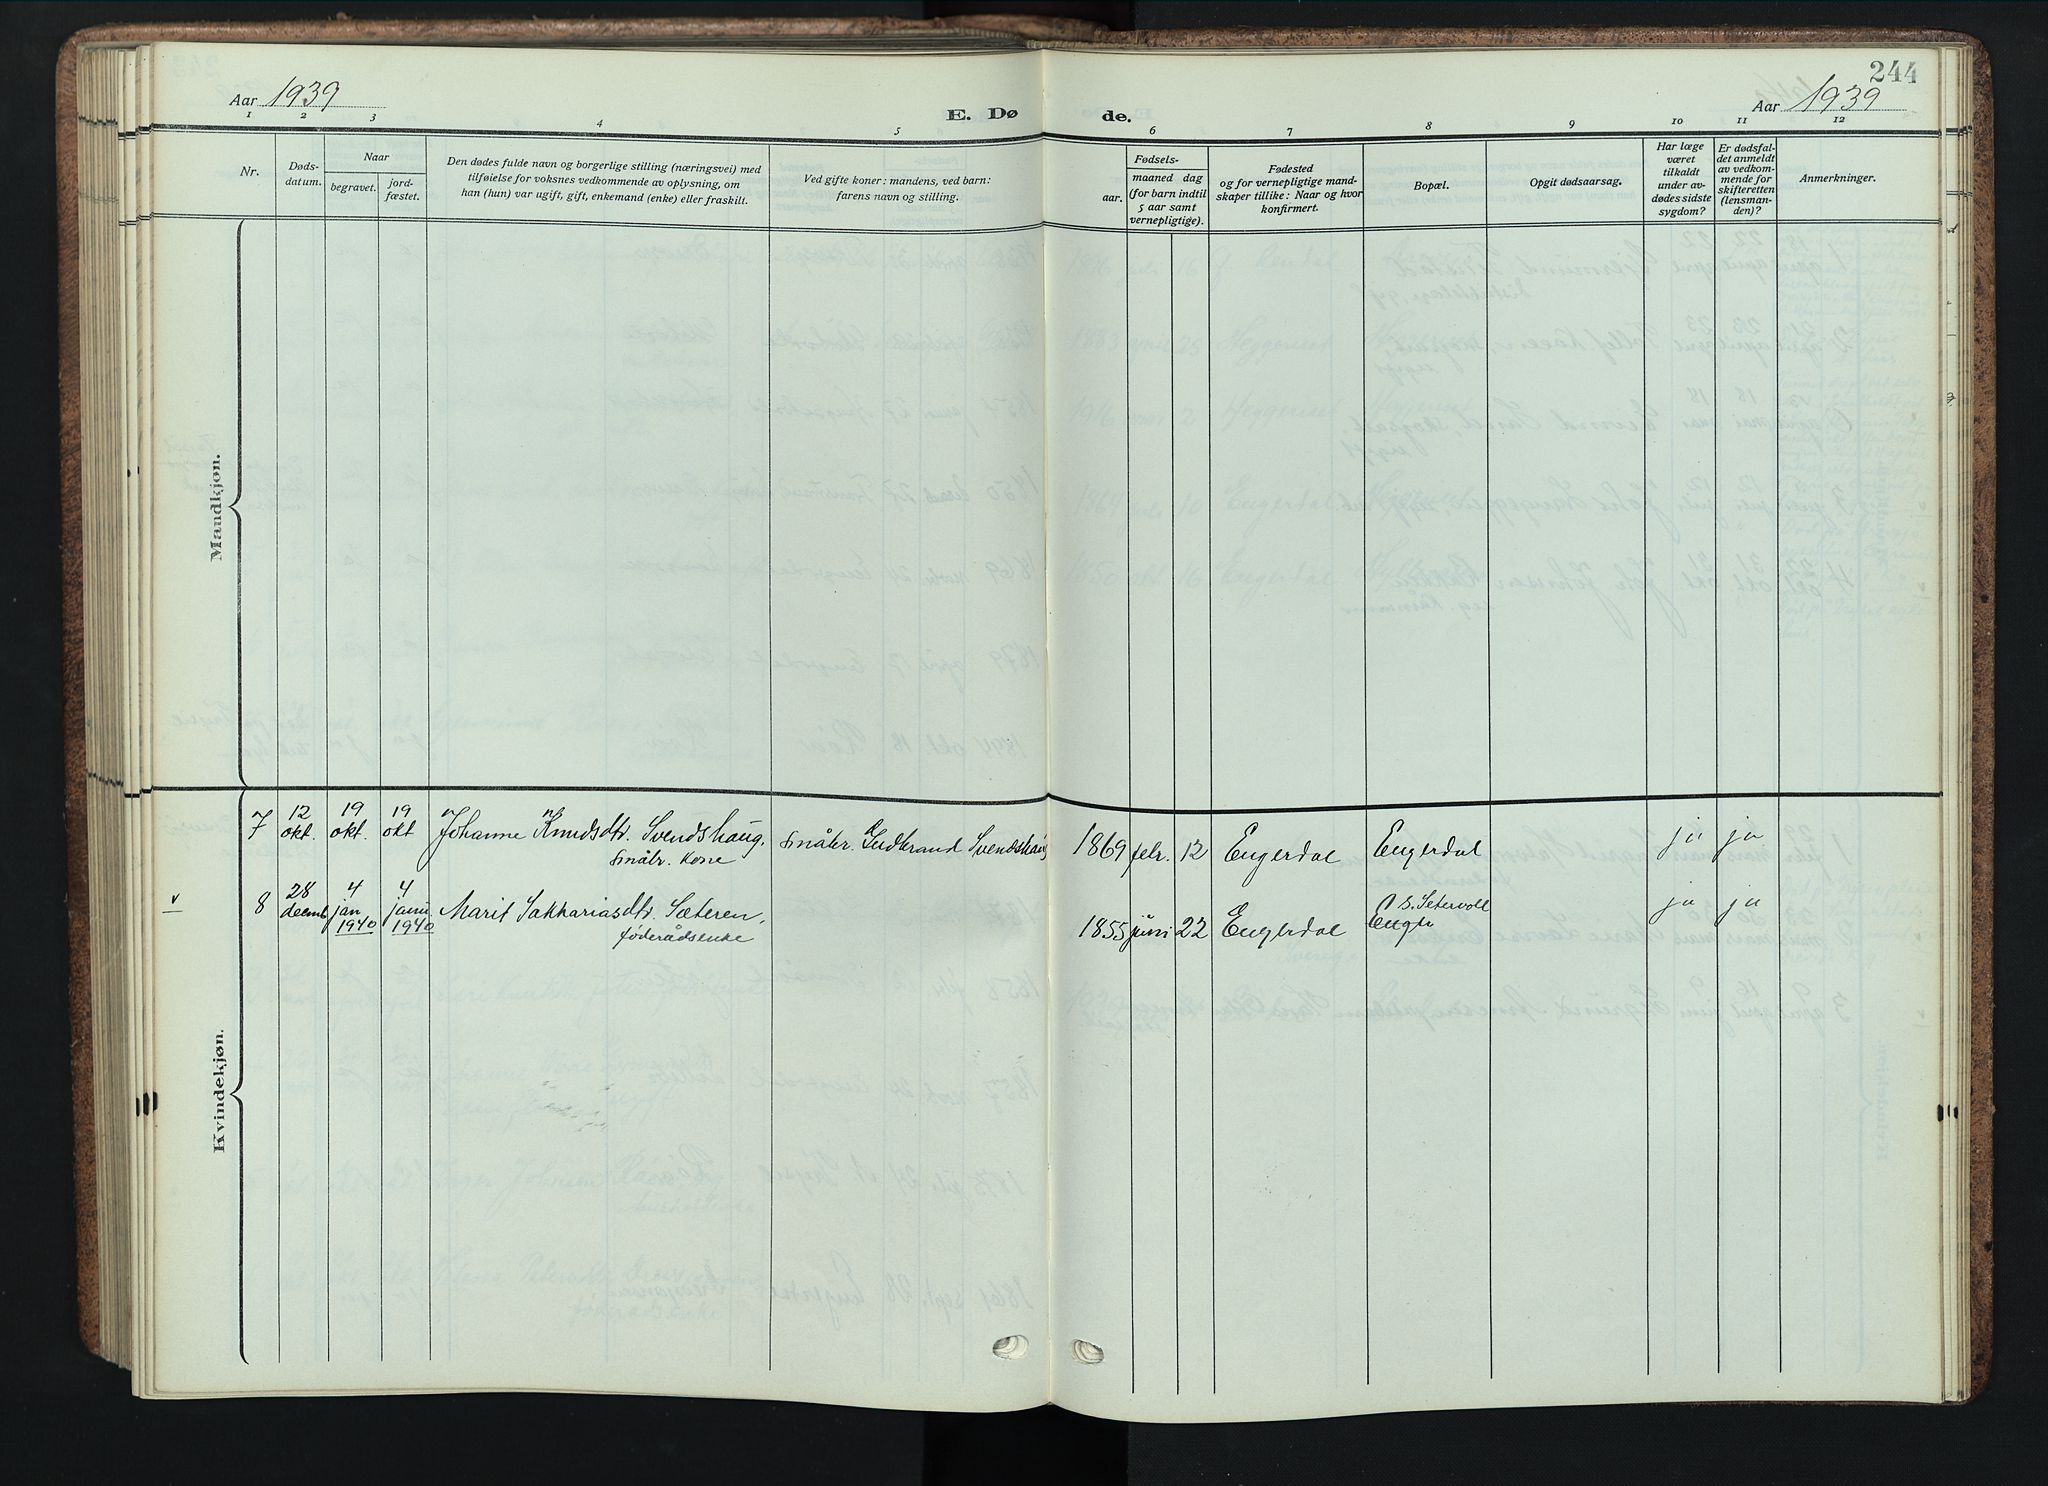 244
Aar 1939
E. Dø
de.
Aar 1939
1 2 3 4 5 6 7 8 9 10 11 12
Nr.
Døds-
datum.
Naar
begravet.
jord-
fæstet.
Den dødes fulde navn og borgerlige stilling (næringsvei) med
tilføielse for voksnes vedkommende av oplysning, om
han (hun) var ugift, gift, enkemand (enke) eller fraskilt.
Ved gifte koner: mandens, ved barn:
farens navn og stilling.
Fødsels-
aar.
maaned dag
(for barn indtil
5 aar samt
vernepligtige).
Fødested
og for vernepligtige mand-
skaper tillike: Naar og hvor
konfirmert.
Bopæl.
Opgit dødsaarsag.
Har læge
været
tilkaldt
under av-
dødes sidste
sygdom?
Er dødsfal-
det anmeldt
av vedkom-
mende for
skifteretten
(lensman-
den)?
Anmerkninger.
Mandkjøn.
Kvindekjøn.
7 12 okt. 19 okt. 19 okt Johanne Knudsdtr. Svendshaug, småbr. Gudbrand Svendshaug 1869 febr. 12 Engerdal Engerdal ja ja
småbr. kone
v 8 28 decemb 4 jan 1940 4 janu. 1940 Marit Sakkariasdtr. Sæteren, 1855 juni 22 Engerdal ja ja
føderådsenke